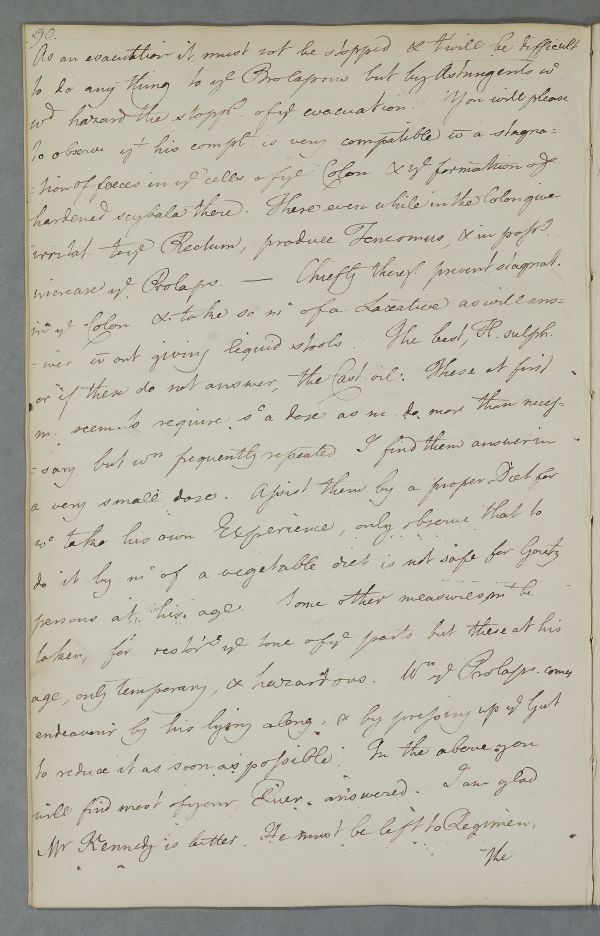 90.
As an evacuation it must not be stopped & t'will be difficult
to do any thing to ye Prolapsus but by Astringents wc
wd hazard the stopp. of ye evacuation. You will please
to observe yt his compl. is very compatible w a stagna=
=tion of faeces in ye cells of ye Colon & ye formation of
hardened scybala there. These even while in the Colon give
irritat. to ye Rectum, produce Tenesmus, & in possd.
increase ye Prolaps. — Chiefly theref. prevent stagnat.
in ye Colon & take so m of a Laxative as will ans=
=wer wout giving liquid stools. The best, Fl. sulph.
or if these do not answer, the Cast. oil. These at first
m. seem to require sc a dose as m. do more than neces=
=sary but wn frequently repeated I find them answer in
a very small dose. Assist them by a proper Diet for
wc take his own Experience, only observe that to
do it by ms of a vegetable diet is not safe for Gouty
persons at his age. Some other measures mt be
taken, for restorg ye tone of ye parts but these at his
age, only temporary, & hazardous. Wn ye Prolaps. comes
endeavour by his lying along, & by pressing up ye Gut
to reduce it as soon as possible. In the above you
will find most of your Quer. answered. I am glad
Mr Kennedy is better. He must be left to Regimen,
The